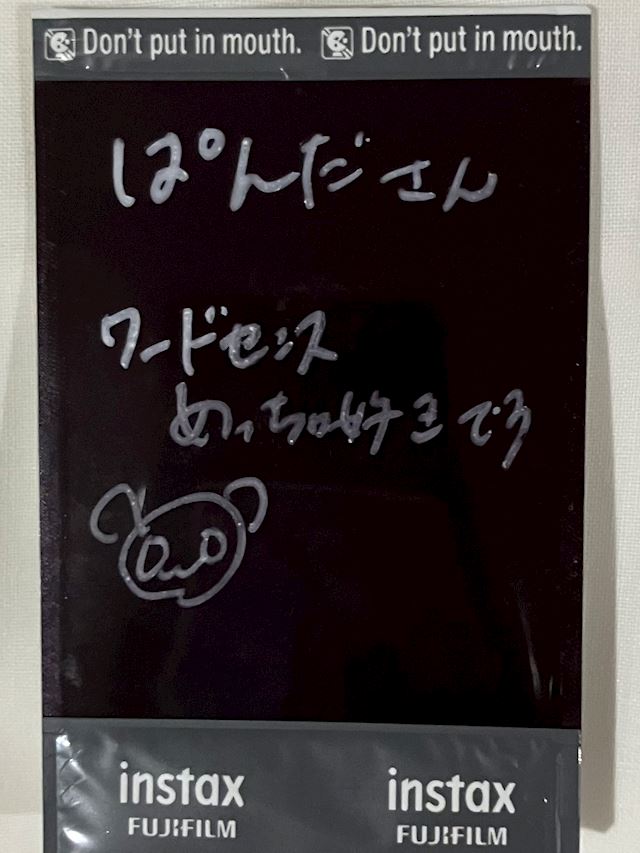 Don't put in mouth. Don't put in mouth.
ぱんださん
ワードセンス
めっちゃ好きです
instax instax
FUJIFILM FUJIFILM